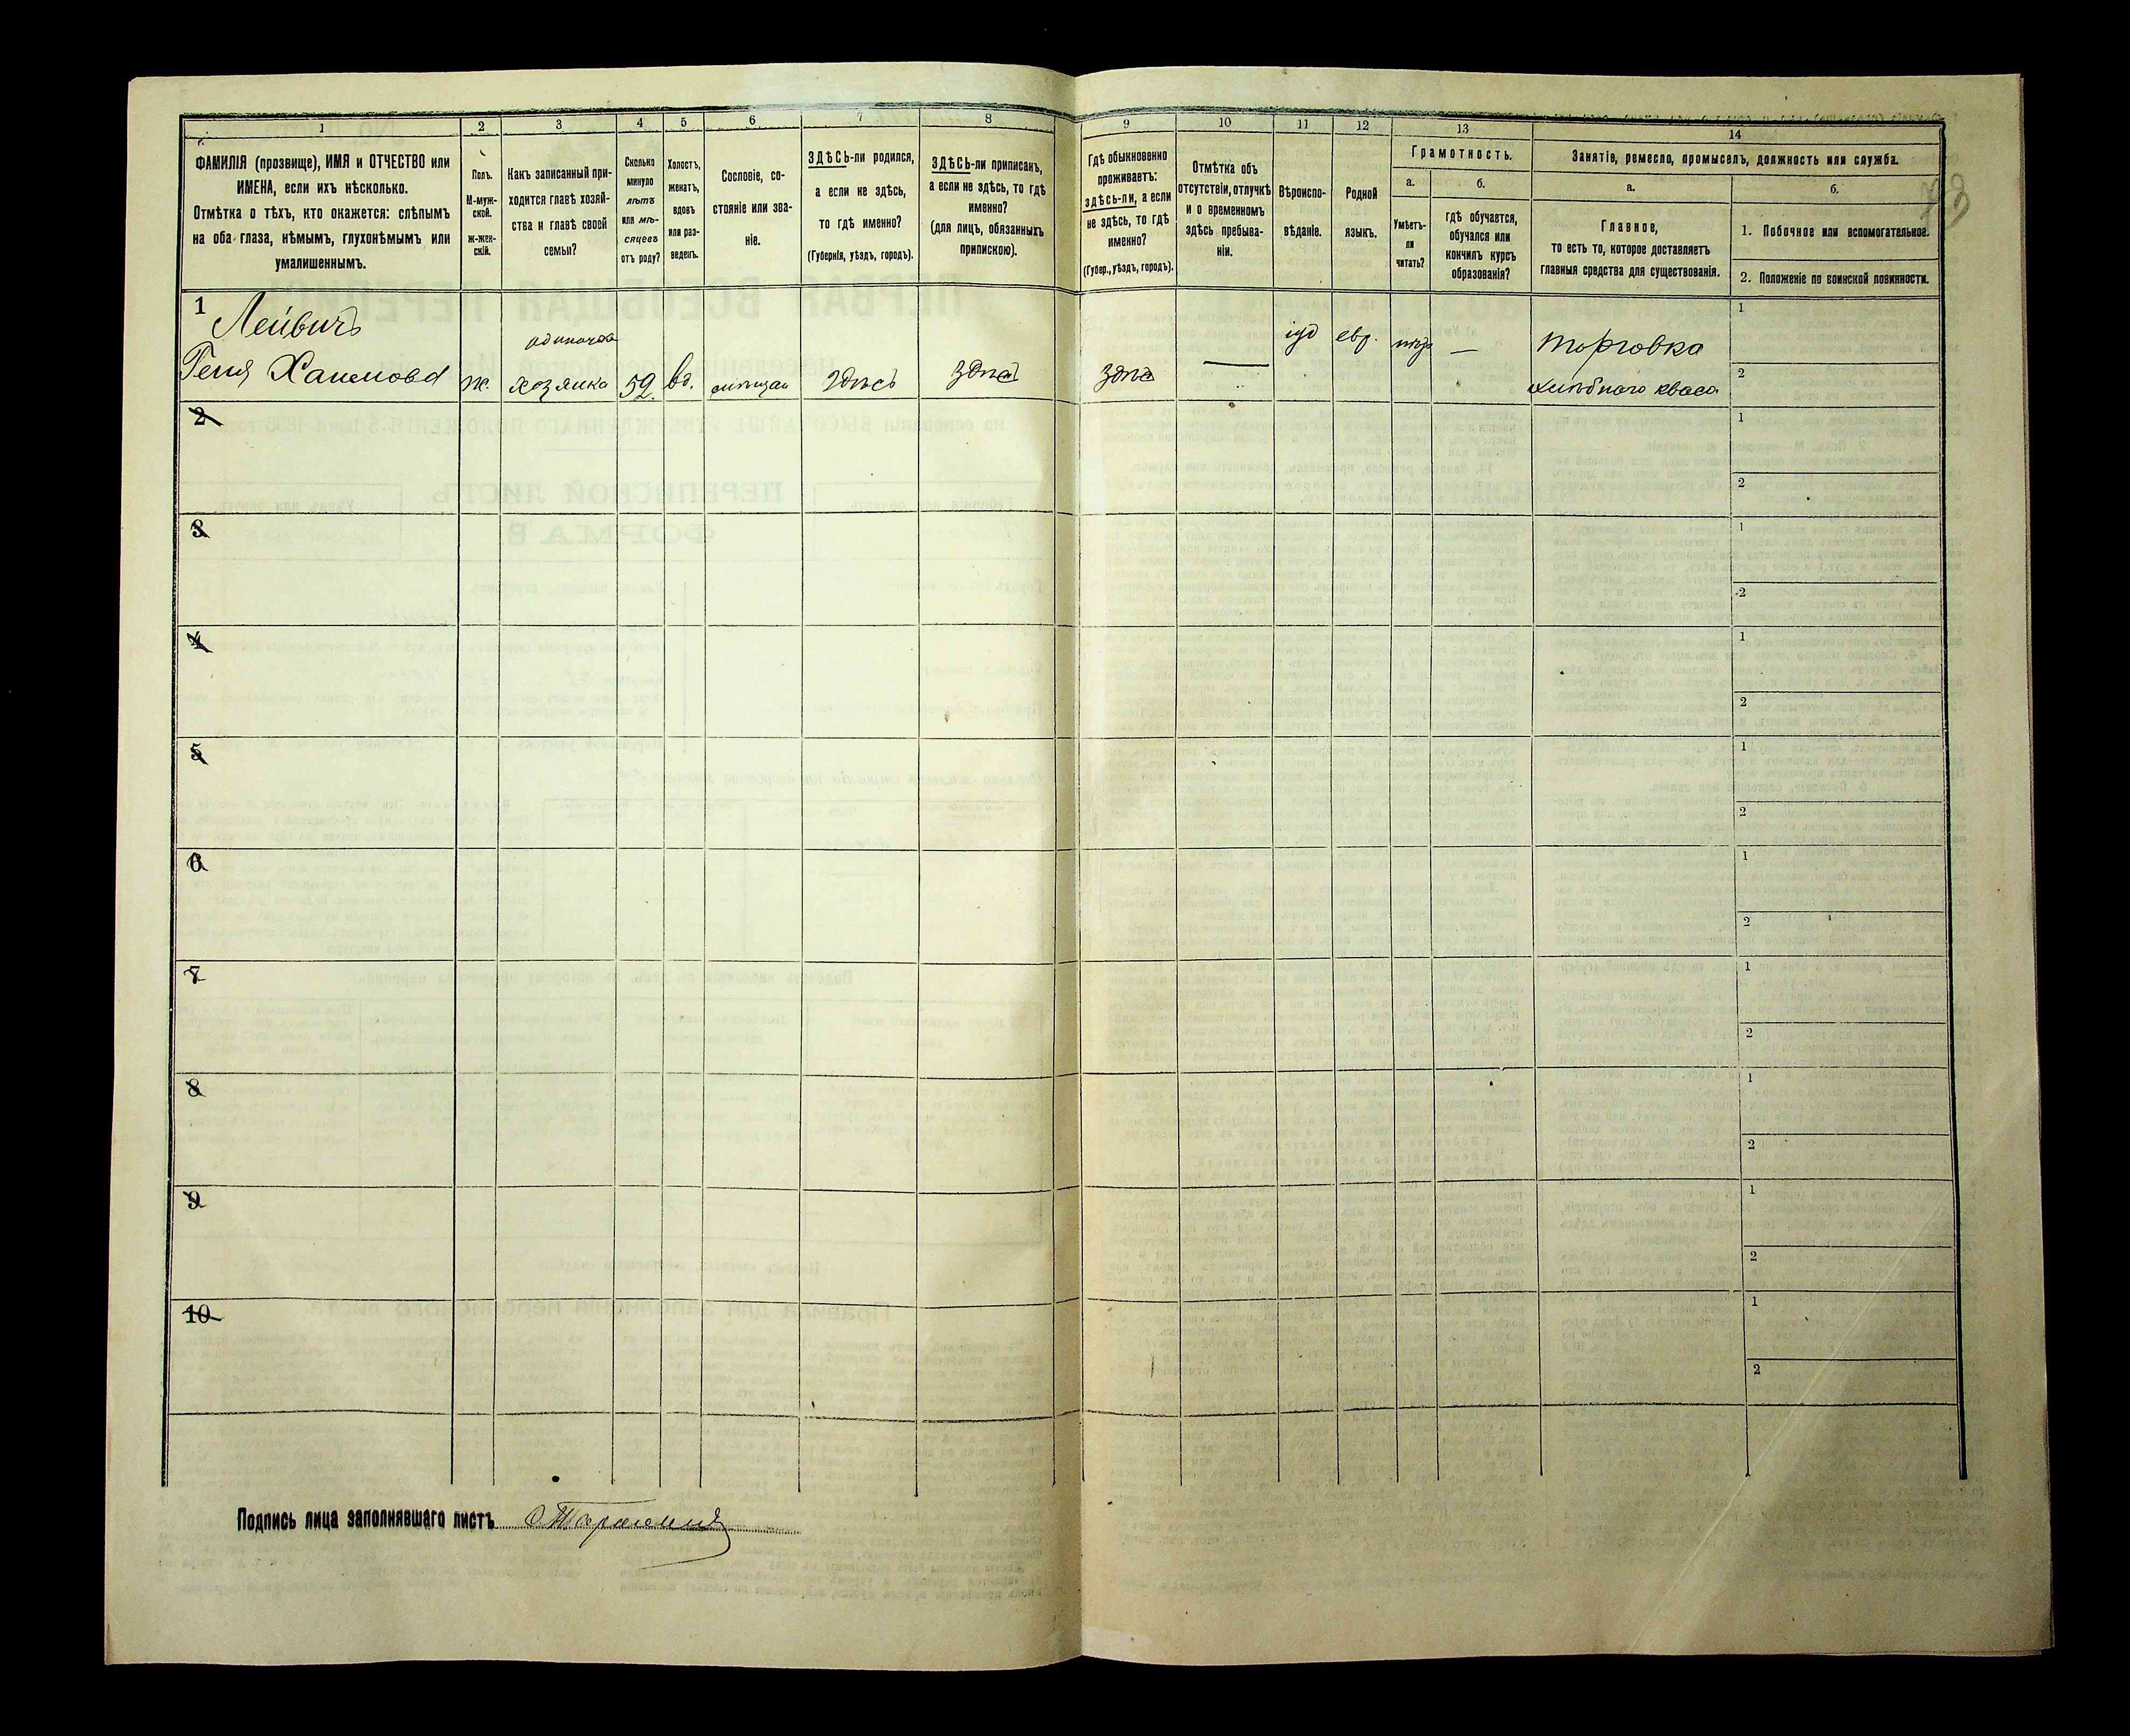 1 2 3 4 5 6 7 8 9 10 11 12 13 14
ФАМИЛІЯ (прозвище), ИМЯ и ОТЧЕСТВО или
ИМЕНА, если ихъ нѣсколько.
Отмѣтка о тѣхъ, кто окажется: слѣпымъ
на оба глаза, нѣмымъ, глухонѣмымъ или
умалишеннымъ.
Полъ.
М-муж-
ской.
ж-жен-
скій.
Какъ записанный при-
ходится главѣ хозяй-
ства и главѣ своей
семьи?
Сколько
минуло
лѣтъ
или мѣ-
сяцевъ
отъ роду?
Холостъ,
женатъ,
вдовъ
или раз-
веденъ.
Сословіе, со-
стояніе или зва-
ніе.
ЗДѢСЬ-ли родился,
а если не здѣсь,
то гдѣ именно?
(Губернія, уѣздъ, городъ).
ЗДѢСЬ-ли приписанъ,
а если не здѣсь, то гдѣ
именно?
(для лицъ, обязанныхъ
припискою).
Гдѣ обыкновенно
проживаетъ:
здѣсь-ли, а если
не здѣсь, то гдѣ
именно?
(Губер., уѣздъ, городъ).
Отмѣтка объ
отсутствіи, отлучкѣ
и о временномъ
здѣсь пребыва-
ніи.
Вѣроиспо-
вѣданіе.
Родной
языкъ.
Грамотность.
а.
Умѣетъ-
ли
читать?
б.
гдѣ обучается,
обучался или
кончилъ курсъ
образованія?
Занятіе, ремесло, промыселъ, должность или служба.
а.
Главное,
то есть то, которое доставляетъ
главныя средства для существованія.
б.
1. Побочное или вспомогательное.
2. Положеніе по воинской повинности.
73
1
Лейвичъ
Геня Хаимова
ж.
одиночка
хозяйка
59.
вд.
мѣщан
здѣсь
здѣсь
здѣсь
—
іуд
евр.
—
торговка
хлѣбного кваса
1
2
2
1
2
3
1
2
4
1
2
5
1
2
6
1
2
7
1
2
8
1
2
9
1
2
10
1
2
Подпись лица заполнявшаго листъ